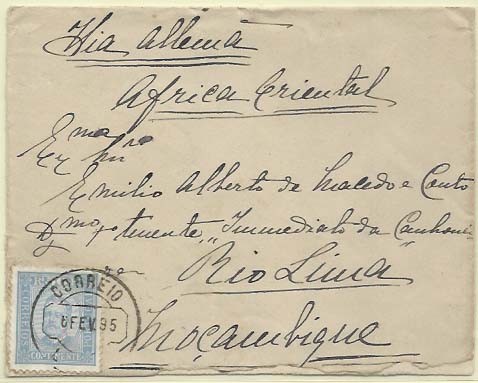 Via allemã
Africa Oriental
Exmo Snr
Emilio Alberto de Macedo e Couto
Dgmo 1º tenente, Immediato da Canhoneira
Rio Lima
Moçambique
CORREIO
6 FEV. 95
CORREIOS
CONTINENTE